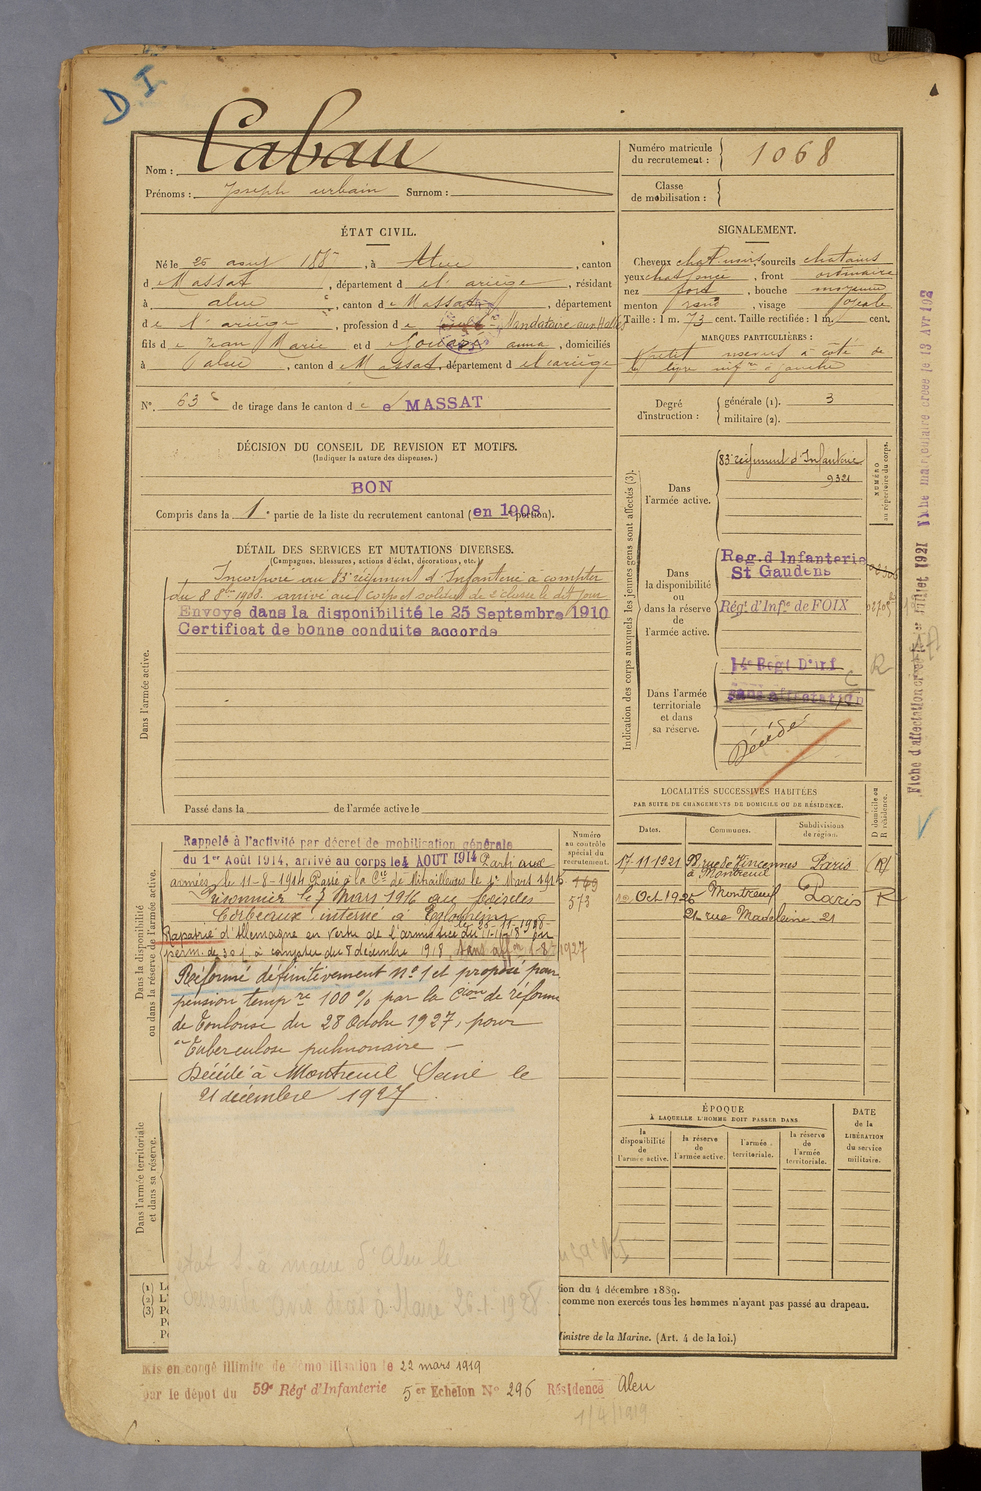 D.I.
Nom : Cabau
Prénoms : Joseph urbain Surnom :
Numéro matricule du recrutement : 1068
Classe de mobilisation :
ÉTAT CIVIL.
Né le 25 aout 188 , à Aleu , canton
d e Massat , département d e l'ariège , résidant
à aleu , canton d e Massat , département
d e l'ariège , profession d e Mandataire aux Halles
fils d e Jean Marie et d e anna , domiciliés
à aleu , canton d e Massat , département d e l'ariège
N°. 63 de tirage dans le canton d e MASSAT
SIGNALEMENT.
Cheveux chat. noirs , sourcils chatains
yeux chat foncé , front ordinaire
nez fort , bouche moyenne
menton rond , visage ovale
Taille : 1 m. 73 cent. Taille rectifiée : 1 m. cent.
MARQUES PARTICULIÈRES :
Petit noevus à côté de
la lèvre infre à gauche
Degré d'instruction :
générale (1). 3
militaire (2).
DÉCISION DU CONSEIL DE REVISION ET MOTIFS.
(Indiquer la nature des dispenses.)
BON
Compris dans la 1e partie de la liste du recrutement cantonal ( en 1908 portion).
DÉTAIL DES SERVICES ET MUTATIONS DIVERSES.
(Campagnes, blessures, actions d'éclat, décorations, etc.)
Dans l'armée active.
Incorporé au 83e régiment d'Infanterie à compter
du 8 8bre 1908. arrivé au corps et soldat de 2e classe le dit jour
Envoyé dans la disponibilité le 25 Septembre 1910
Certificat de bonne conduite accordé
Passé dans la de l'armée active le
Indication des corps auxquels les jeunes gens sont affectés (3).
NUMÉRO au répertoire du corps.
Dans l'armée active.
83e régiment d'Infanterie
9321
Dans la disponibilité ou dans la réserve de l'armée active.
Reg. d Infanterie
St Gaudens
Régt. d'Infie de FOIX
Dans l'armée territoriale et dans sa réserve.
14e Regt D'Inf
sans affectation
Décédé
R
LOCALITÉS SUCCESSIVES HABITÉES
PAR SUITE DE CHANGEMENTS DE DOMICILE OU DE RÉSIDENCE.
Dates. Communes. Subdivisions de région. D domicile ou R résidence.
17-11-1921 98 rue de Vincennes à Montreuil Paris (R)
Oct 1926 Montreuil Paris R
21 rue Madeleine 21
Dans la disponibilité ou dans la réserve de l'armée active.
Numéro au contrôle spécial du recrutement.
169
573
Rappelé à l'activité par décret de mobilisation générale
du 1er Août 1914, arrivé au corps le 4 AOUT 1914 Parti aux
armées le 11-8-1914 Passé à la Cie de Mitrailleuses le 1er Mars 1916
Prisonnier le 7 Mars 1916 au bois des
Corbeaux interné à
Rapatrié d'Allemagne en vertu de l'armistice du 11-11-18 en
perm. de 30 j. à compter du 8 décembre 1918, sans affon 1-8-1927
Réformé définitivement N° 1 et proposé pour
pension tempre 100 % par la Cion de réforme
de Toulouse du 28 Octobre 1927, pour
"Tuberculose pulmonaire –
Décédé à Montreuil Seine le
21 décembre 1927.
Dans l'armée territoriale et dans sa réserve.
ÉPOQUE
À LAQUELLE L'HOMME DOIT PASSER DANS
la disponibilité de l'armée active.
la réserve de l'armée active.
l'armée territoriale.
la réserve de l'armée territoriale.
DATE de la LIBÉRATION du service militaire.
à maire d'Aleu le
26.1.1928
(1)
(2)
(3)
ion du 4 décembre 1889.
comme non exercés tous les hommes n'ayant pas passé au drapeau.
Ministre de la Marine. (Art. 4 de la loi.)
Mis en congé illimité de démobilisation le 22 mars 1919
par le dépôt du 59e Régt d'Infanterie 5er Echelon N° 296 Résidence Aleu
1/4/1919
Fiche matriculaire créée le 13 Avr 192